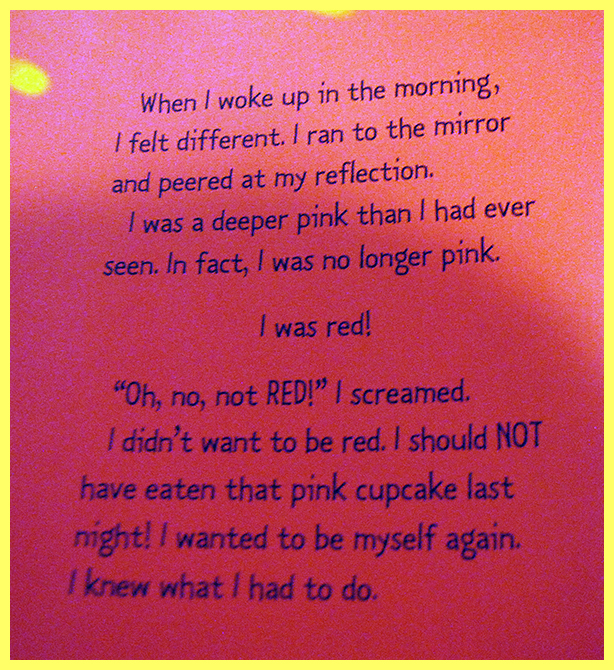 When I woke up in the morning,
I felt different. I ran to the mirror
and peered at my reflection.
I was a deeper pink than I had ever
seen. In fact, I was no longer pink.
I was red!
“Oh, no, not RED!” I screamed.
I didn’t want to be red. I should NOT
have eaten that pink cupcake last
night! I wanted to be myself again.
I knew what I had to do.